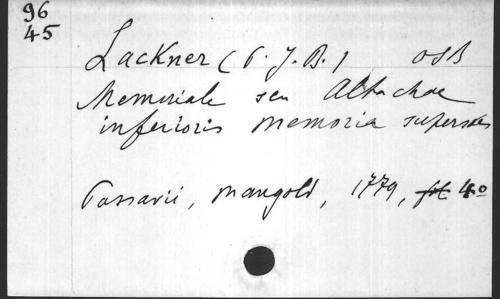 96
45
Lackner (P. J. B.) OSB
Memoriale seu Altachae
inferioris memoria superstes
Passavii, Mangold, 1779, 4o